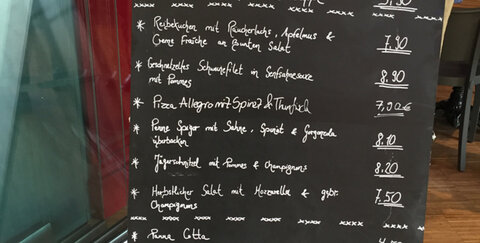 xxxx xxxx
* Reibekuchen mit Räucherlachs, Apfelmus &
Creme Fraîche an bunten Salat 7,90
* Geschnetzeltes Schweinefilet in Senfsahnesauce
mit Pommes 8,90
* Pizza Allegro mit Spinat & Thunfisch 7,90€
* Penne Spezer mit Sahne, Spinat & Gorgonzola
überbacken 8,10
* Jägerschnitzel mit Pommes & Champignons 8,20
* Herbstlicher Salat mit Mozzarella & gebr.
Champignons 7,50
xxxx xxxx xxx xxxx xxxx xxxx xxxx
* Panna Cotta